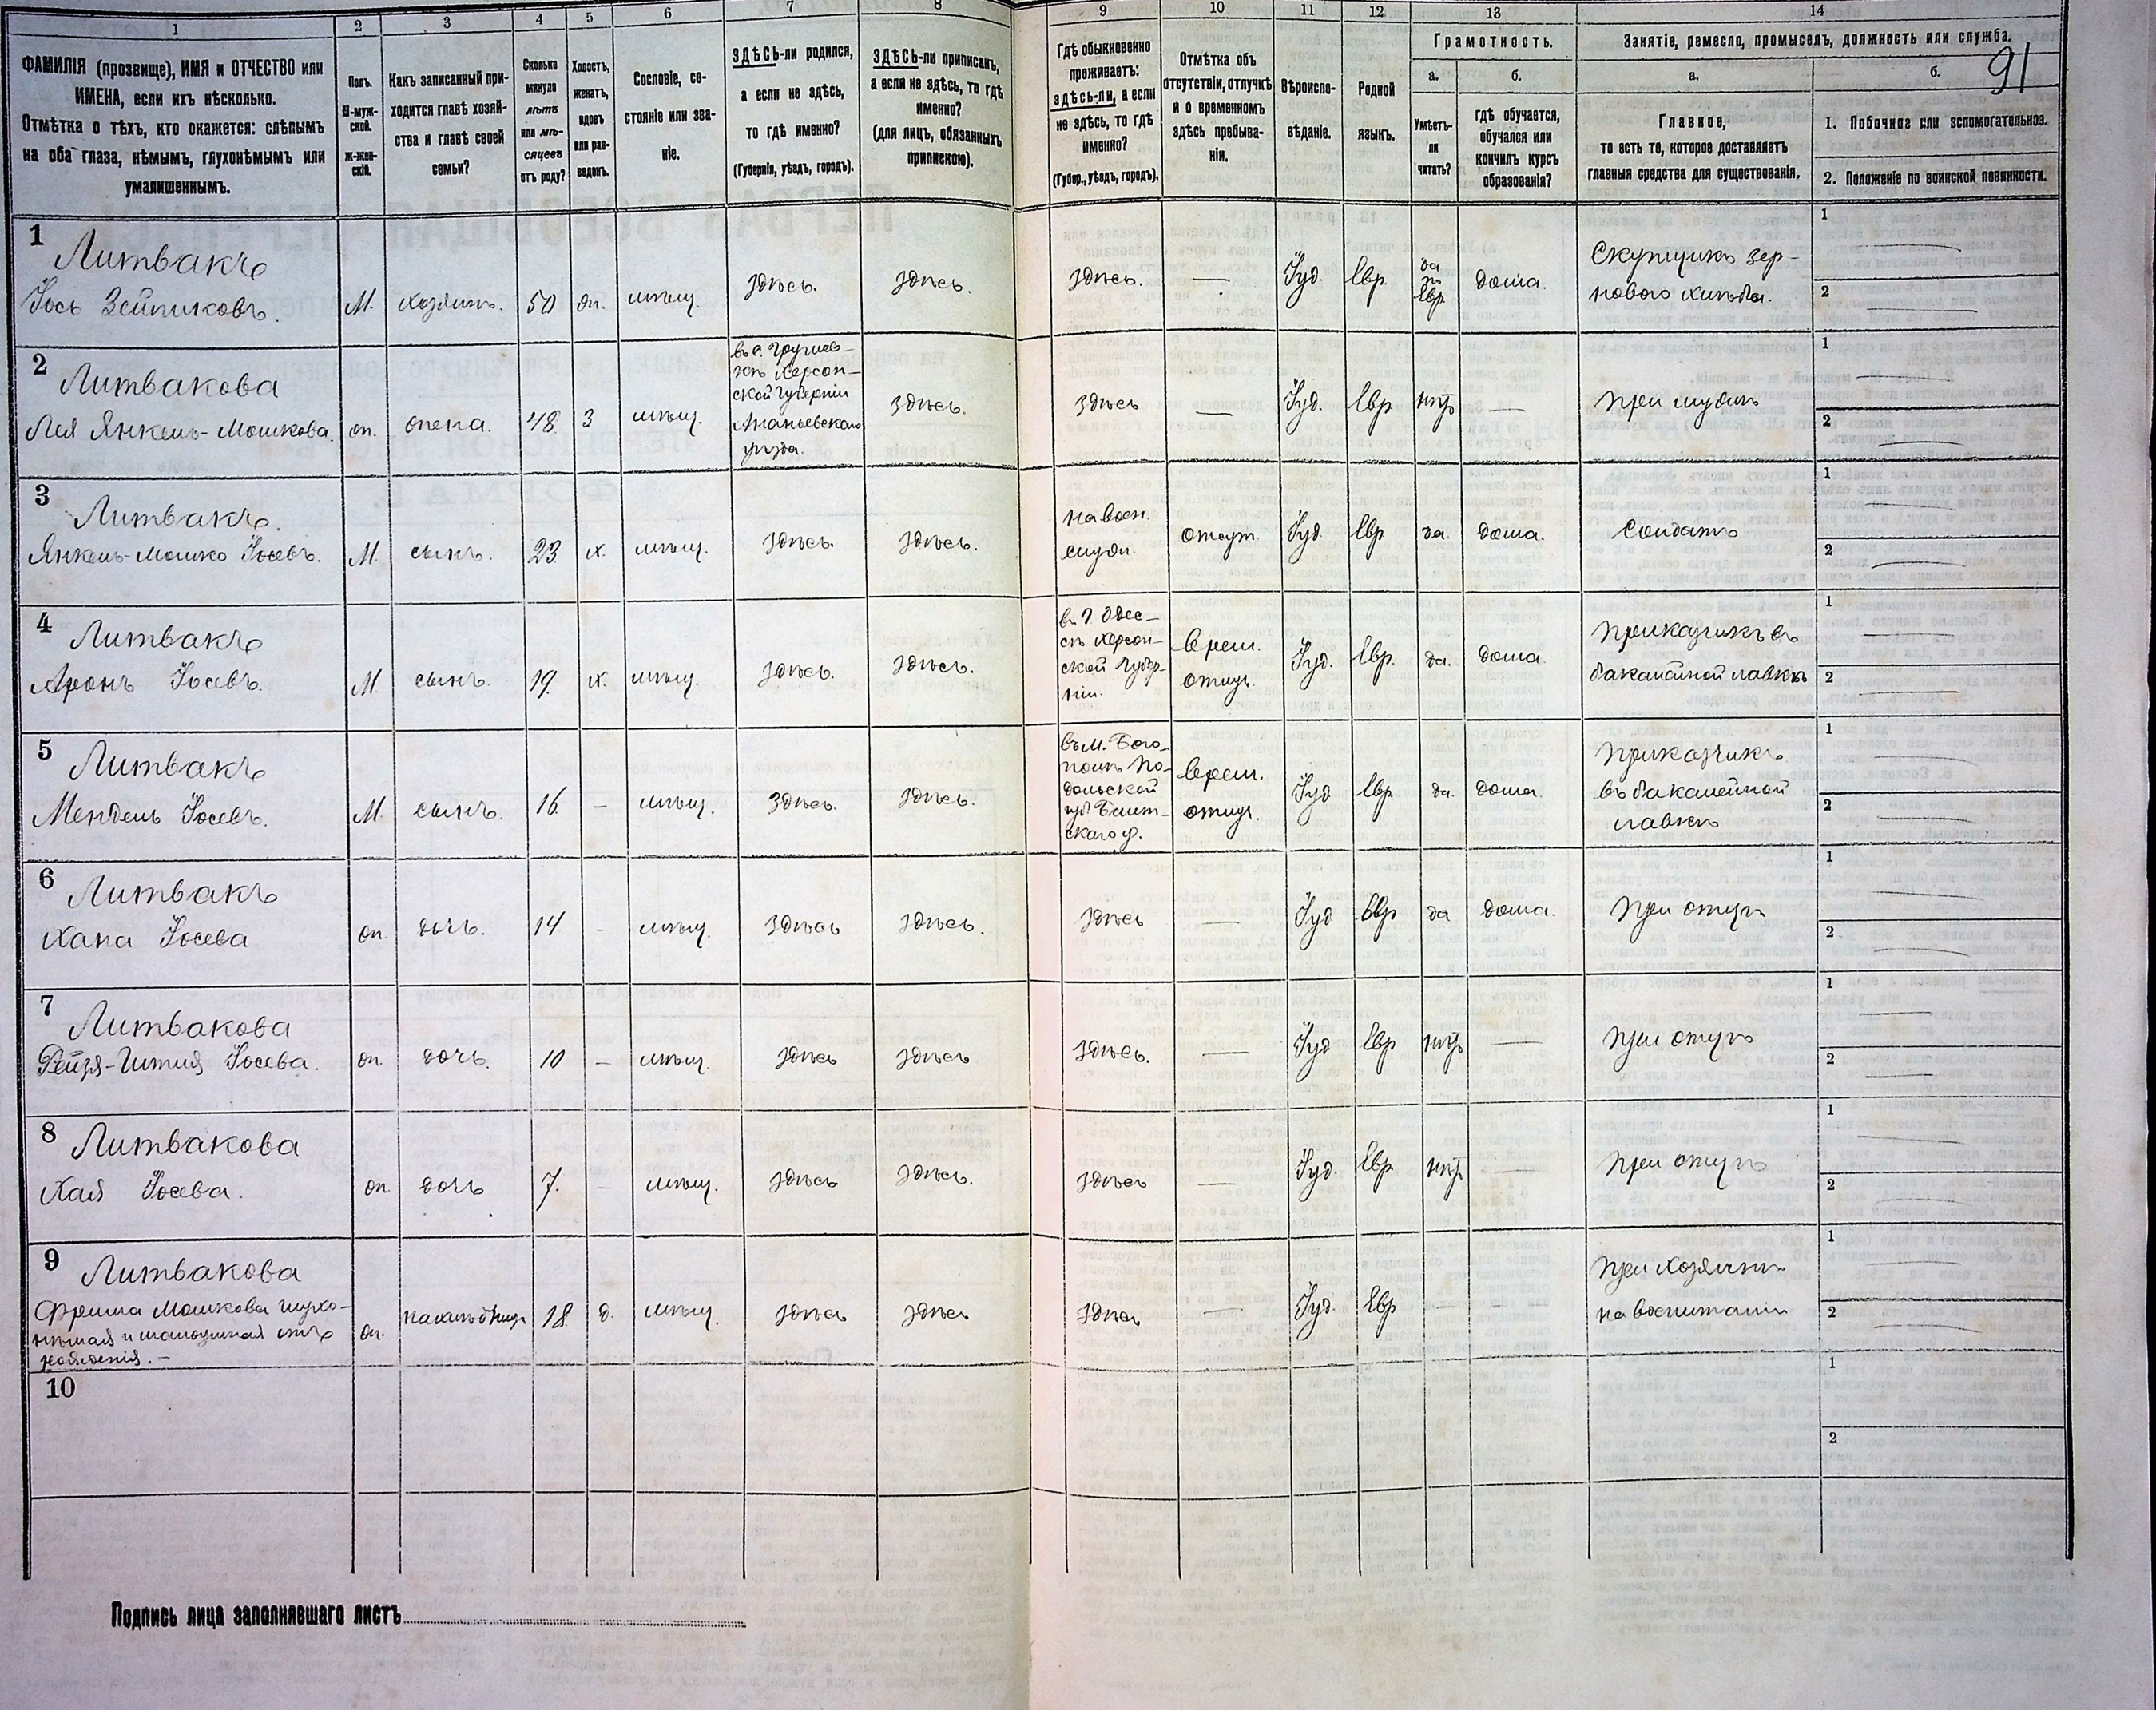 1
2
3
4
5
6
7
8
9
10
11
12
13
14
91
ФАМИЛІЯ (прозвище), ИМЯ и ОТЧЕСТВО или
ИМЕНА, если ихъ нѣсколько.
Отмѣтка о тѣхъ, кто окажется: слѣпымъ
на оба глаза, нѣмымъ, глухонѣмымъ или
умалишеннымъ.
Полъ.
М-муж-
ской.
Ж-жен-
скій.
Какъ записанный при-
ходится главѣ хозяй-
ства и главѣ своей
семьи?
Сколько
минуло
лѣтъ
или мѣ-
сяцевъ
отъ роду?
Холостъ,
женатъ,
вдовъ
или раз-
веденъ.
Сословіе, со-
стояніе или зва-
ніе.
ЗДѢСЬ-ли родился,
а если не здѣсь,
то гдѣ именно?
(Губернія, уѣздъ, городъ).
ЗДѢСЬ-ли приписанъ,
а если не здѣсь, то гдѣ
именно?
(для лицъ, обязанныхъ
припискою).
Гдѣ обыкновенно
проживаетъ:
здѣсь-ли, а если
не здѣсь, то гдѣ
именно?
(Губер., уѣздъ, городъ).
Отмѣтка объ
отсутствіи, отлучкѣ
и о временномъ
здѣсь пребыва-
ніи.
Вѣроиспо-
вѣданіе.
Родной
языкъ.
Грамотность.
а.
б.
Умѣетъ-
ли
читать?
гдѣ обучается,
обучался или
кончилъ курсъ
образованія?
Занятіе, ремесло, промыселъ, должность или служба.
а.
б.
Главное,
то есть то, которое доставляетъ
главныя средства для существованія.
1. Побочное или вспомогательное.
2. Положеніе по воинской повинности.
1
Литвакъ
Іось Зейликовъ.
М.
хозяинъ.
50
жн.
мѣщ.
здѣсь.
здѣсь.
здѣсь.
—
Іуд.
Евр.
да
по
Евр.
дома.
Скупщикъ зер-
нового хлѣба.
1
2
2
Литвакова
Лея Янкель-Мошкова.
ж.
жена.
48.
З
мѣщ.
Херсон-
ской Губерніи
Ананьевскаго
уѣзда.
здѣсь.
здѣсь
—
Іуд.
Евр
нѣтъ
—
при мужѣ
1
2
3
Литвакъ.
Янкель-Мошко Іосевъ.
М.
сынъ.
23.
х.
мѣщ.
здѣсь.
здѣсь.
на воен.
служ.
отсут.
Іуд.
Евр
да.
дома.
Солдатъ
1
2
4
Литвакъ
Аронъ Іосевъ.
М.
сынъ.
19.
х.
мѣщ.
здѣсь.
здѣсь.
въ г Одес-
сѣ Херсон-
ской Губер-
ніи.
врем.
отлуч.
Іуд.
Евр.
да.
дома.
Приказчикъ въ
бакалейной лавкѣ
1
2
5
Литвакъ
Мендель Іосевъ.
М.
сынъ.
16.
—
мѣщ.
здѣсь.
здѣсь.
въ м. Бого-
полѣ По-
дольской
губ. Балт-
скаго у.
врем.
отлуч.
Іуд
Евр
да.
дома.
Приказчикъ
въ бакалейной
лавкѣ
1
2
6
Литвакъ
Хана Іосева
ж.
дочь.
14
-
мѣщ.
здѣсь
здѣсь.
здѣсь
—
Іуд
Евр
да
дома.
при отцѣ
1
2
7
Литвакова
Рейзя-Гитля Іосева.
ж.
дочь.
10
—
мѣщ.
здѣсь
здѣсь
здѣсь.
—
Іуд
Евр
нѣтъ
—
при отцѣ
1
2
8
Литвакова
Хая Іосева.
ж.
дочь
7.
-
мѣщ.
здѣсь
здѣсь.
здѣсь
—
Іуд.
Евр
нѣтъ
—
при отцѣ
1
2
9
Литвакова
Фрима Мошкова глухо-
нѣмая и малоумная отъ
рожденія.—
ж.
нахлѣбница
18.
д.
мѣщ.
здѣсь
здѣсь
здѣсь
—
Іуд.
Евр
—
—
при хозяинѣ
на воспитаніи
1
2
10
1
2
Подпись лица заполнявшаго листъ